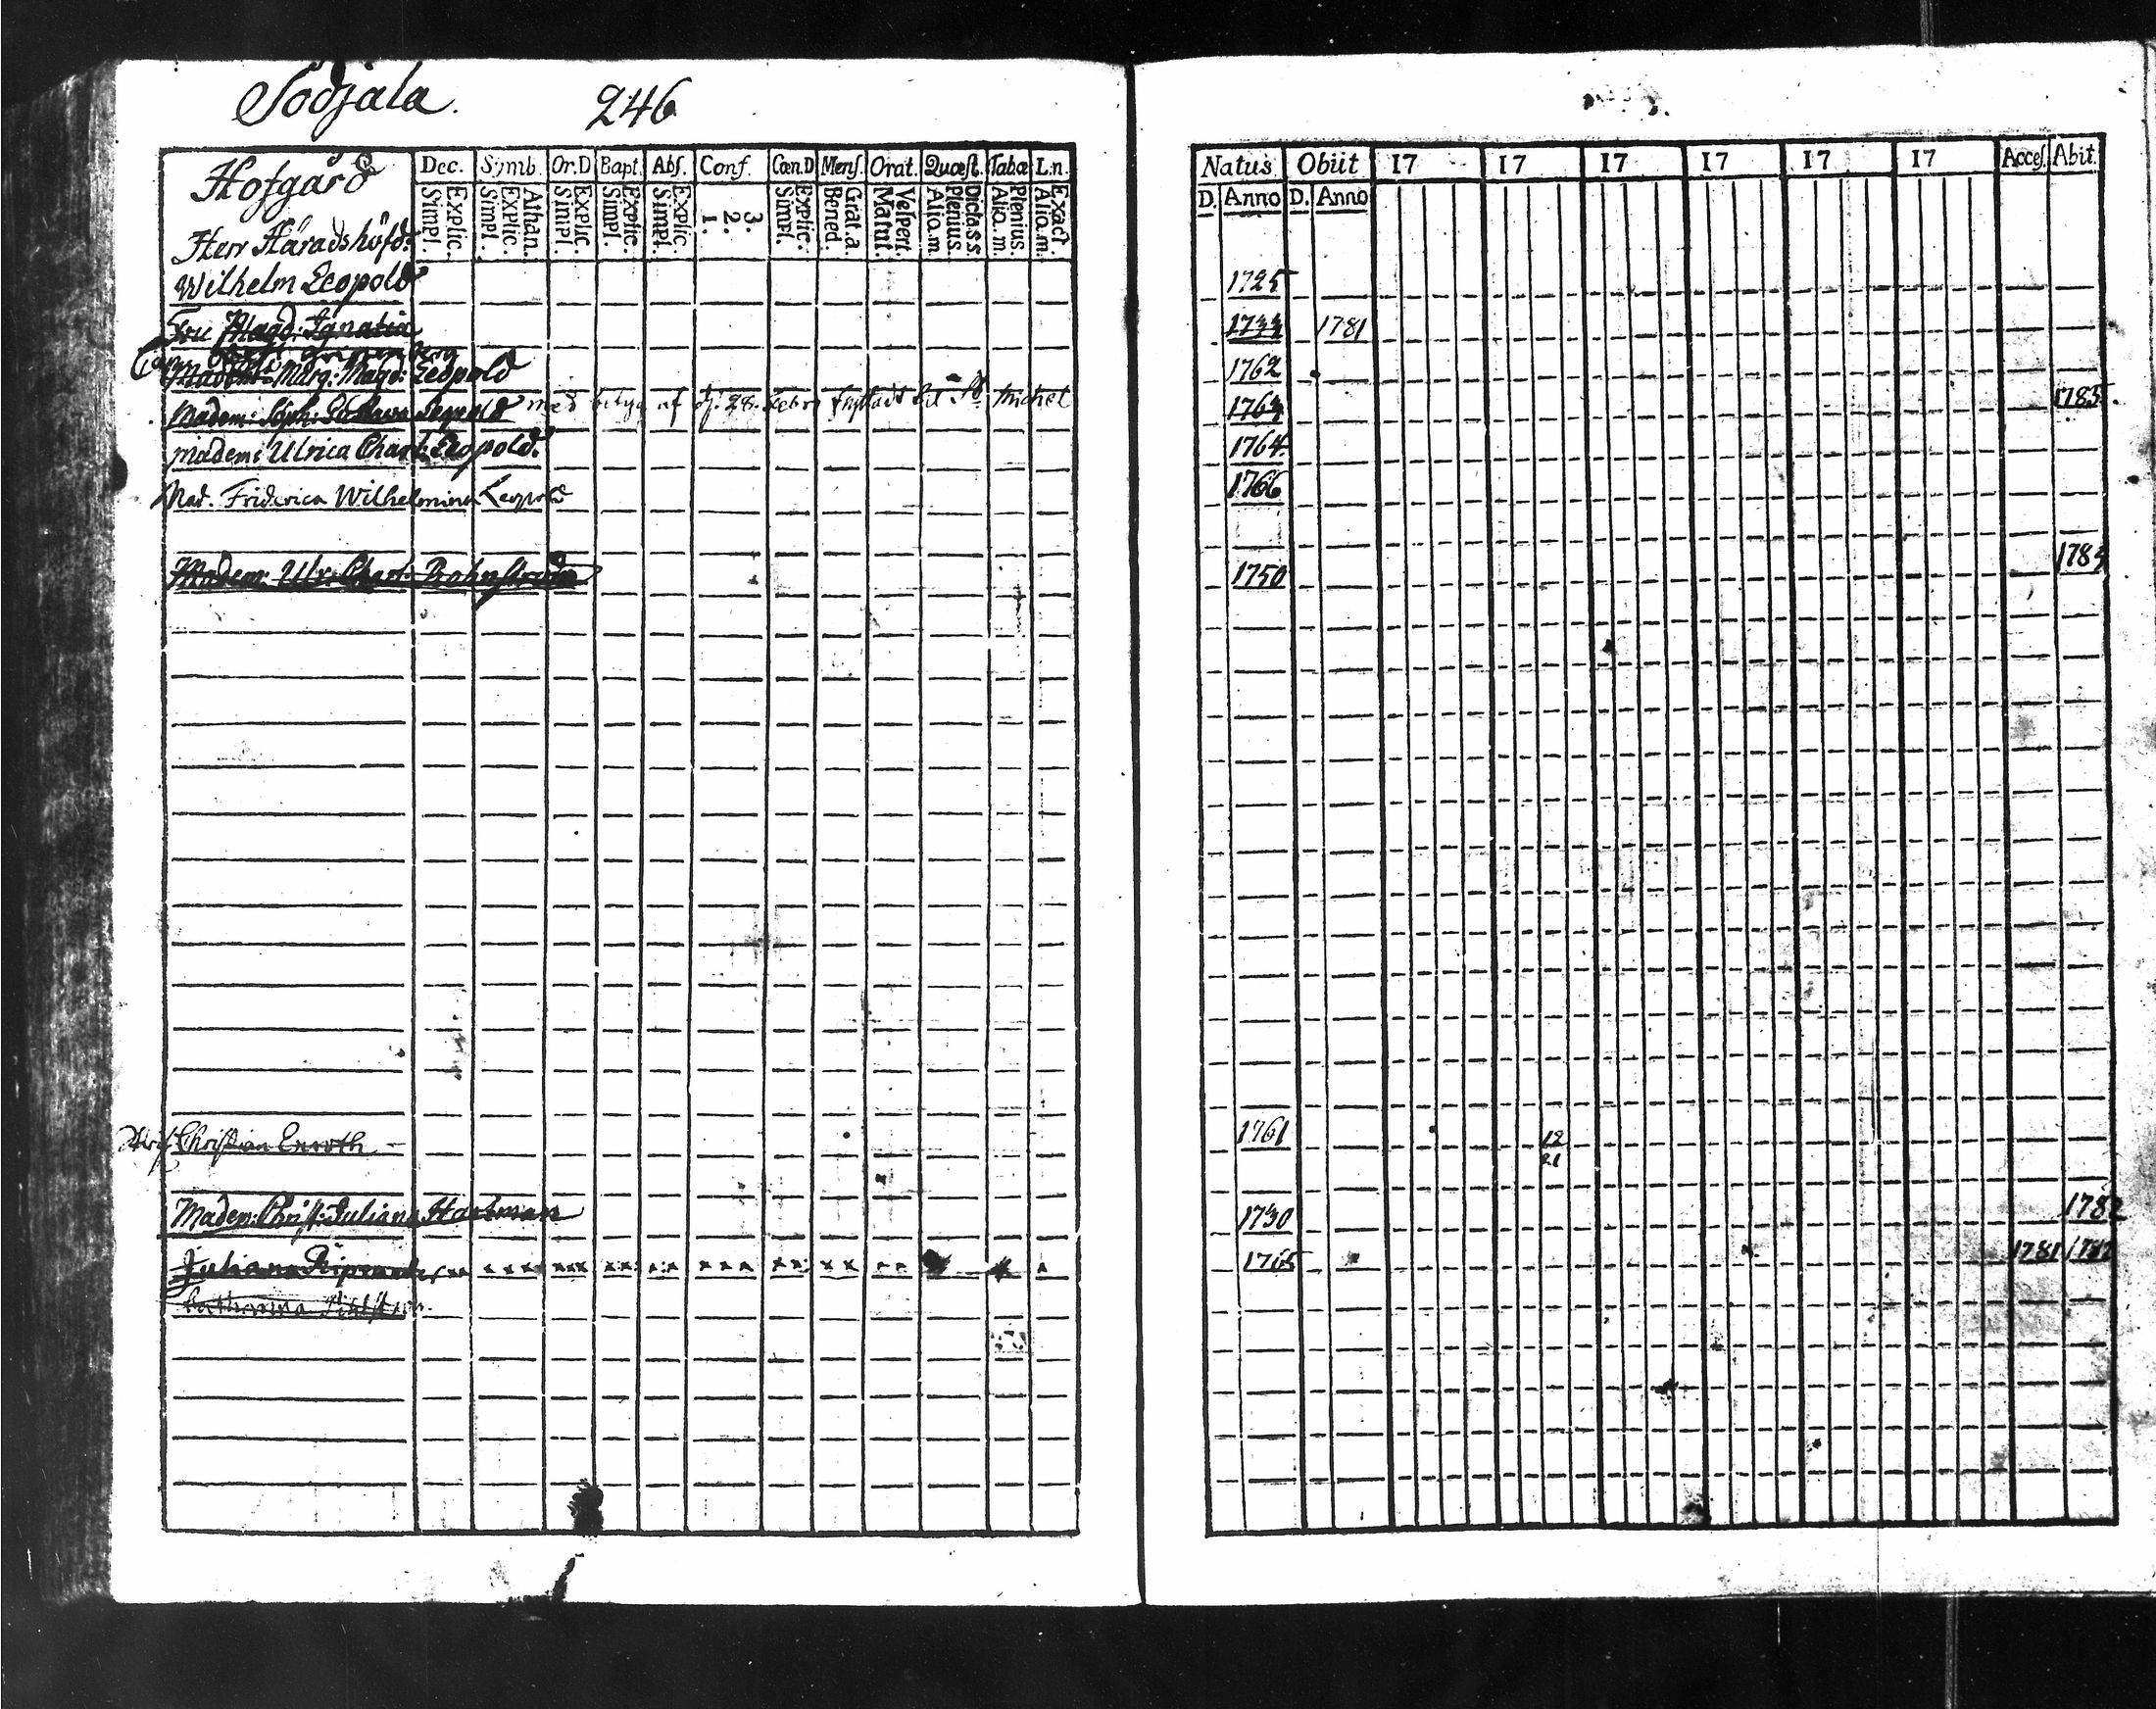 Sodjala. 246
Hofgård Dec. Symb. Or.D Bapt. Abſ. Conf. Cœn.D Menſ. Orat. Quæſt. Tabæ L.n.
Simpl. Explic. Simpl. Explic. Athan. Simpl. Explic. Simpl. Explic. Simpl. Explic. 1. 2. 3. Simpl. Explic. Bened. Grat.a. Matut. Veſpert. Alio.m Plenius. Dicta.s.s. Alio.m. Plenius. Alio.m. Exact
Natus Obiit 17 17 17 17 17 17 Acceſ. Abit.
D. Anno D. Anno
Herr Häradshöfd:
Wilhelm Leopold 1725
Fru Magd: Ignatia 1733 1781
Marg: Magd: Leopold 1762
Madem: Soph: Leopold med af d. 28. Febr. till St Michel 1763 1785.
Madem: Ulrica Charl: Leopold. 1764.
Mad. Friderica Wilhelmina Leopold 1766
Madem: Ulr: Charl: 1750 1784
Christian Enroth 1761 12
21
Madem: Christ: Juliana Hartman 1730 1782
Juliana 1765 1781 1782
Catharina